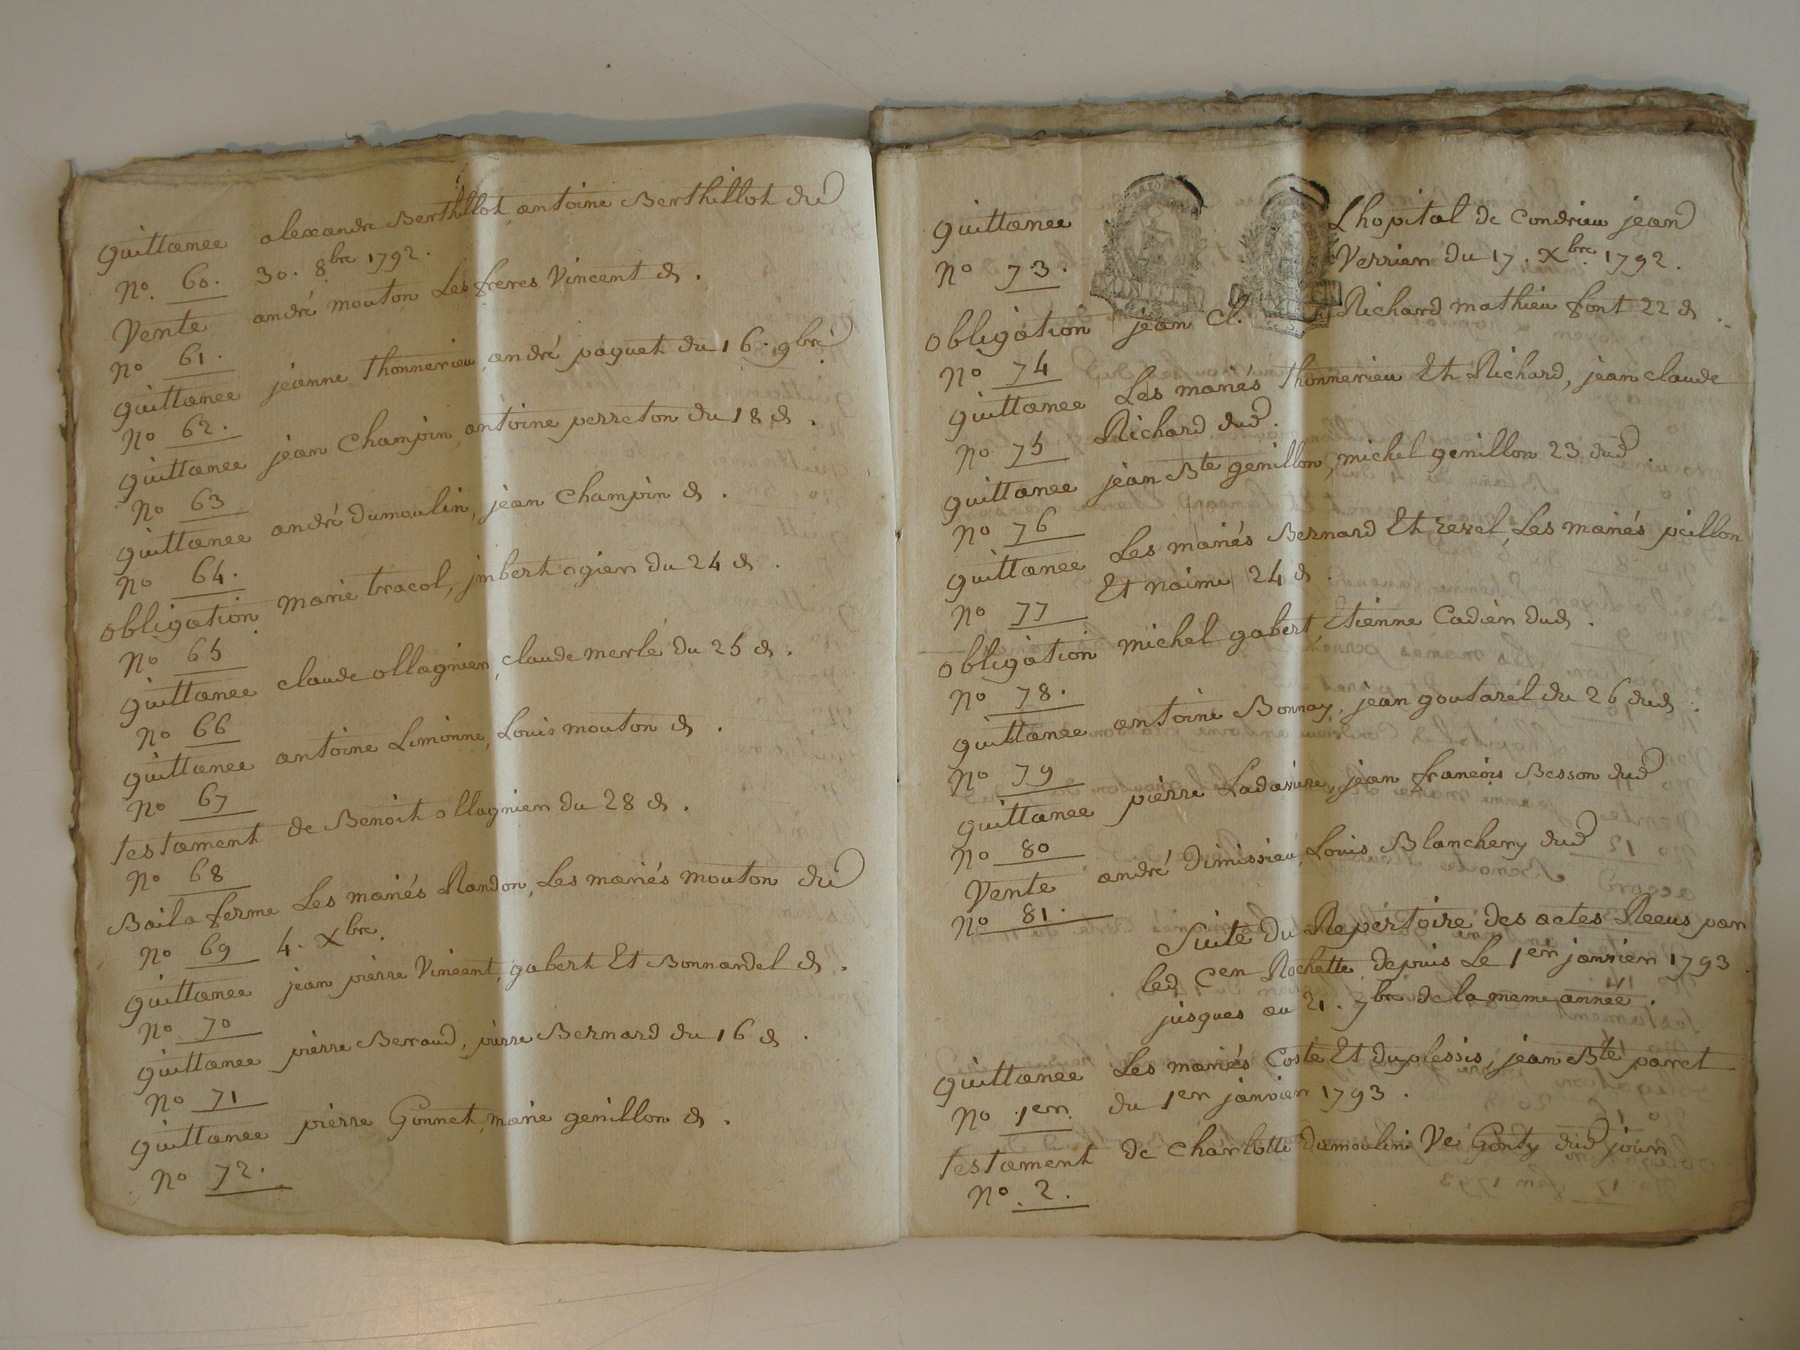 quittance alexandre Berthillot, antoine Berthillot dud
No. 60. 30. 8bre 1792.
Vente andré mouton Les freres Vincent d.
no 61.
quittance jeanne thonnerieu, andré paquet du 16. 9bre
no 62.
quittance jean Champin, antoine perreton du 18 d.
no 63
quittance andré dumoulin, jean Champin d.
no 64.
obligation marie tracol, jmbert ogier du 24 d.
no 65
quittance claude ollagnier, claude merle du 25 d.
no 66
quittance antoine Limonne, Louis mouton d.
no 67
testament de Benoit ollagnier du 28 d.
no 68
Bail a ferme Les mariés Randon, Les mariés mouton du
no 69 4. Xbre.
quittance jean pierre Vincent, gabert Et Bonnardel d.
no 70
quittance pierre Beraud, pierre Bernard du 16 d.
no 71
quittance pierre Gonnet, marie genillon d.
no 72.
quittance Lhopital de Condrieu jean
no 73. Verrier du 17. Xbre. 1792.
obligation jean cl. Richard mathieu font 22 d.
no 74
quittance Les mariés thonnerieu Et Richard, jean claude
no 75 Richard dud.
quittance jean Bte genillon, michel genillon 23 dud.
no 76
quittance Les mariés Bernard Et revel, Les mariés peillon
no 77 Et naime 24 d.
obligation michel gabert, Etienne Cadier dud.
no 78.
quittance antoine Bonnay, jean goutarel du 26 dud.
no 79
quittance pierre Ladaviere, jean francois Besson dud
no 80
Vente andré Dimissieu, Louis Blanchery dud
no 81.
Suite du Repertoire des actes Receus par
led Cen Rochette, depuis Le 1er janvier 1793
jusques au 21. 7bre de la meme année.
quittance Les mariés Coste Et duplessis, jean Bte parret
no 1er. du 1er janvier 1793.
testament de Charlotte dumoulin Ve Gondy dud jour
no. 2.